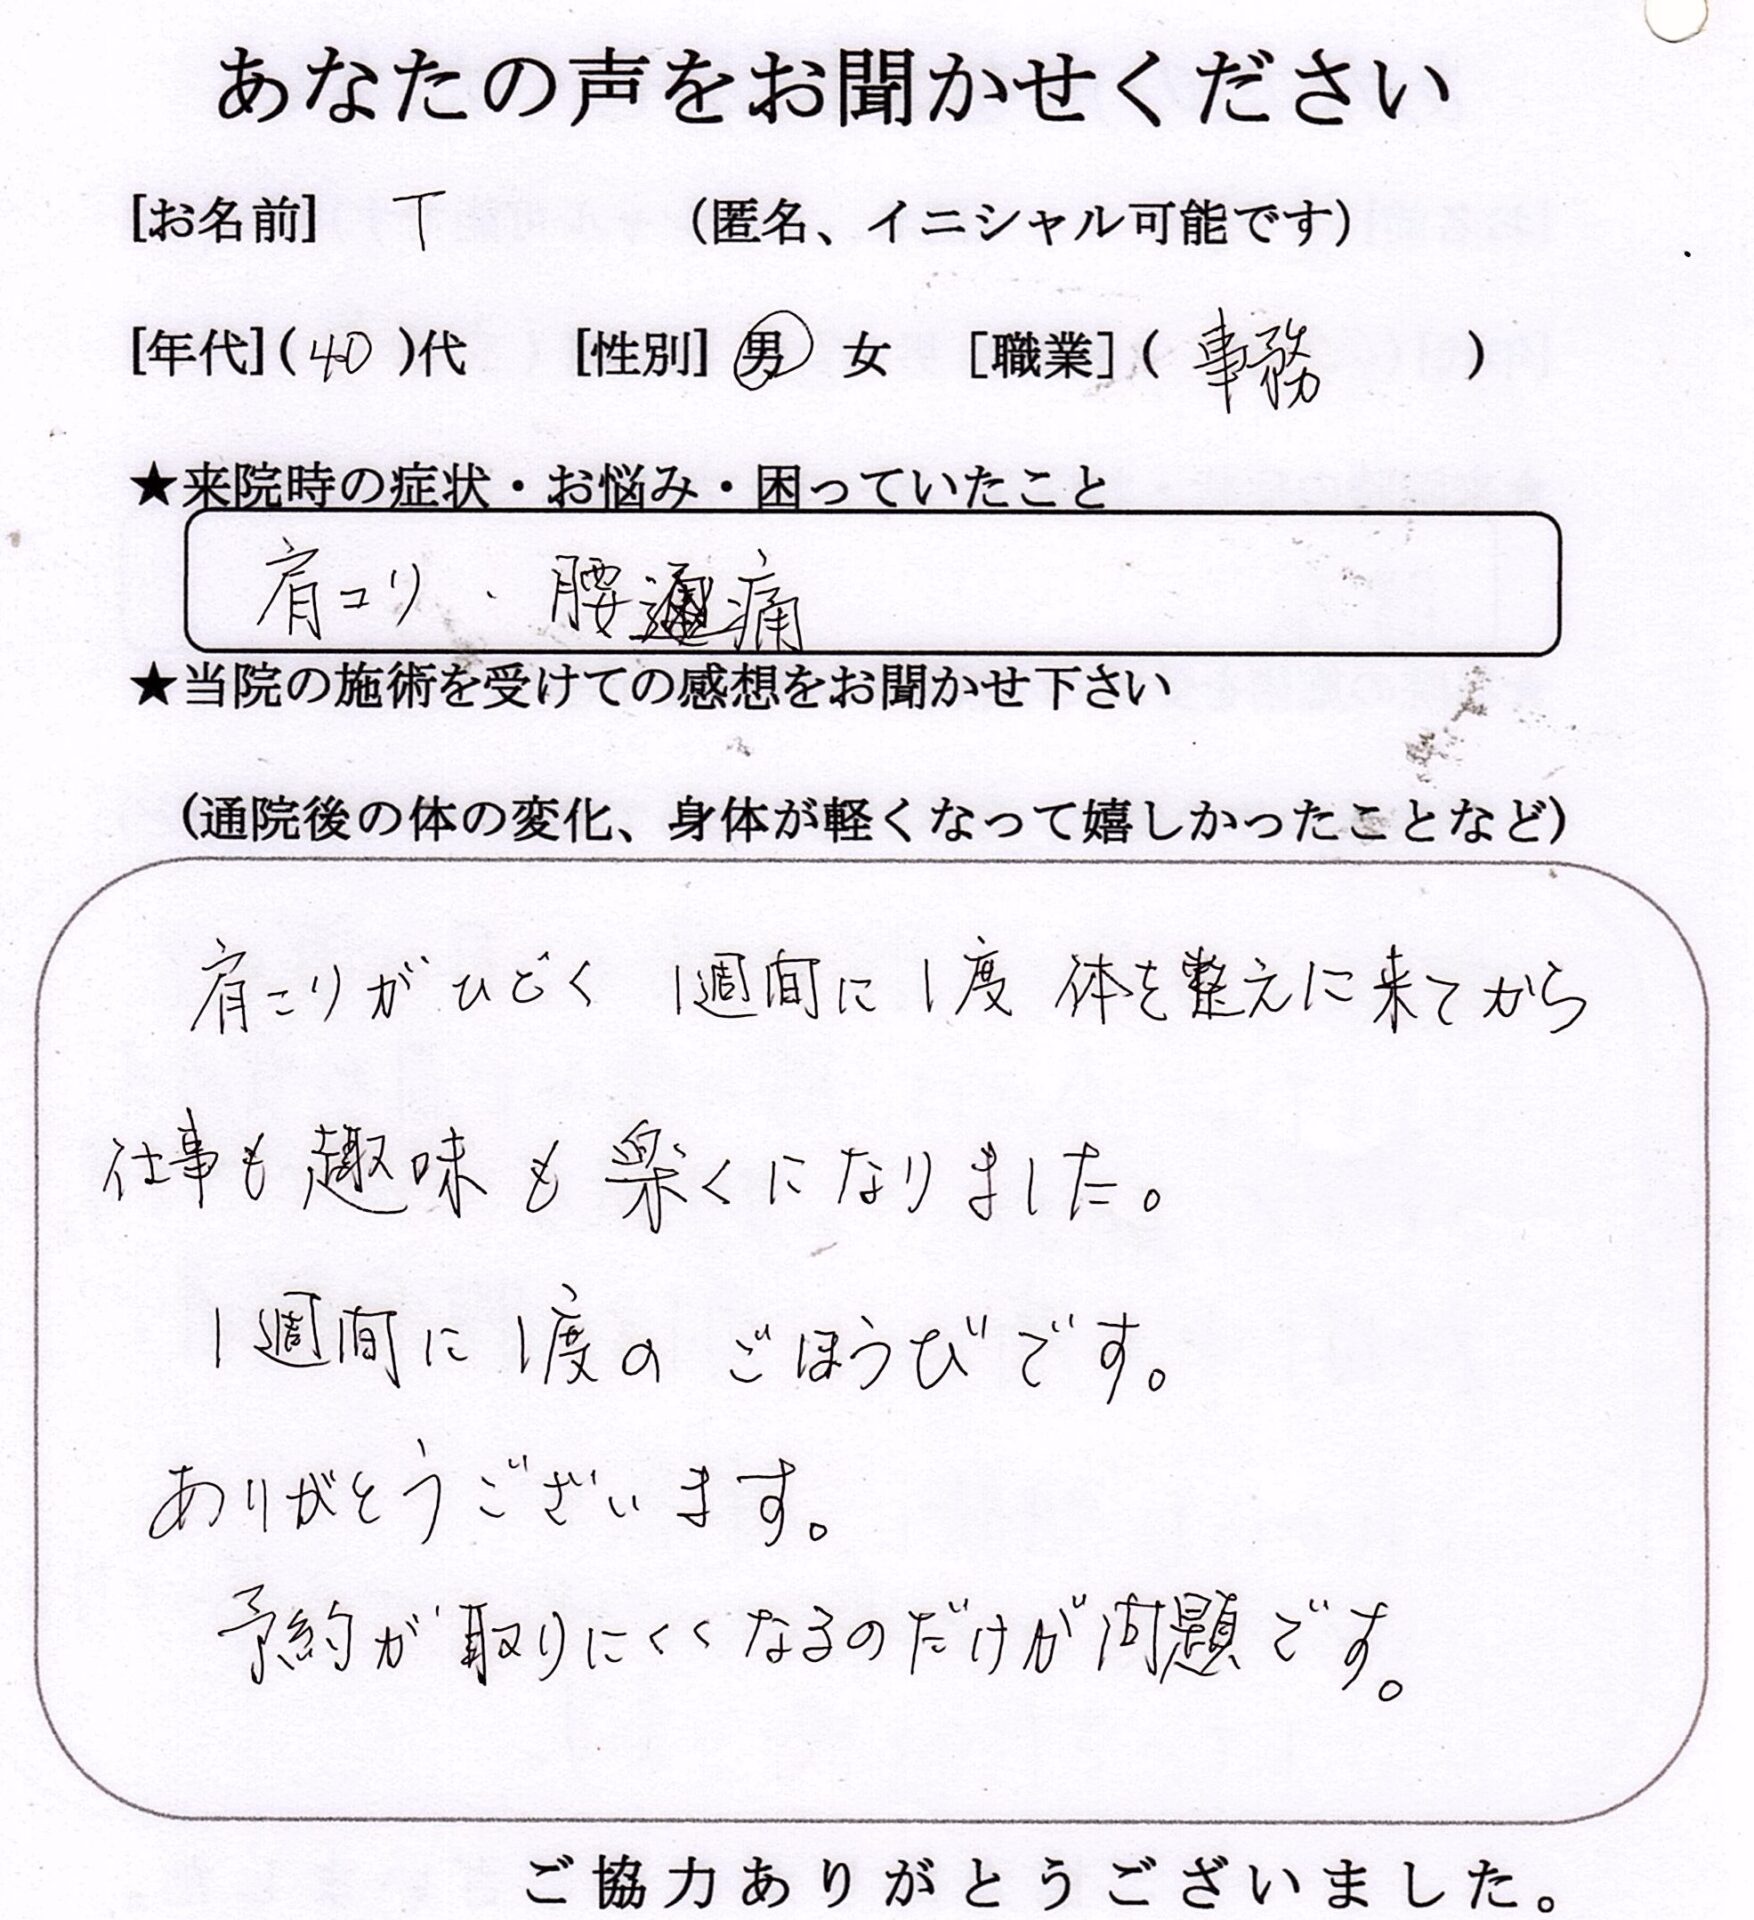 あなたの声をお聞かせください
[お名前] T (匿名、イニシャル可能です)
[年代](40)代 [性別] 男 女 [職業](事務)
★来院時の症状・お悩み・困っていたこと
肩コリ・腰痛
★当院の施術を受けての感想をお聞かせ下さい
(通院後の体の変化、身体が軽くなって嬉しかったことなど)
肩こりがひどく 1週間に1度 体を整えに来てから
仕事も趣味も楽くになりました。
1週間に1度の ごほうびです。
ありがとうございます。
予約が取りにくくなるのだけが問題です。
ご協力ありがとうございました。